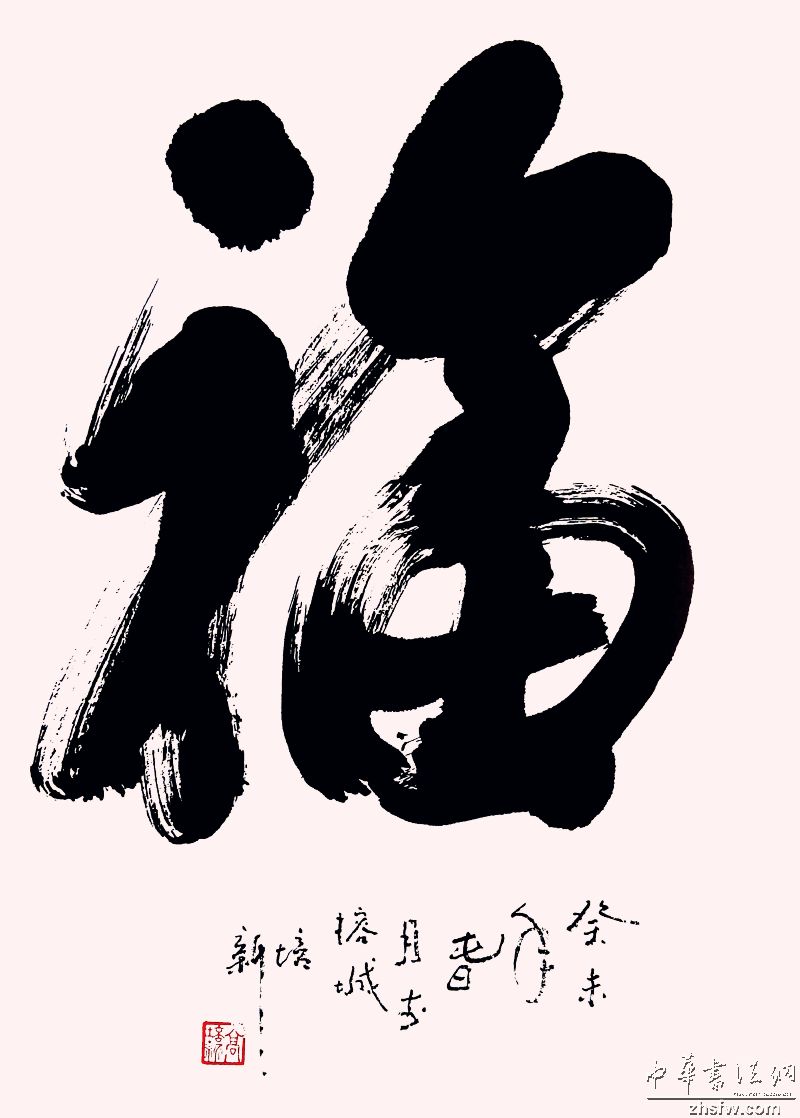 福
癸未
年
春
月於
榕城
培
新
高培新
中華書法網
zhsfw.com